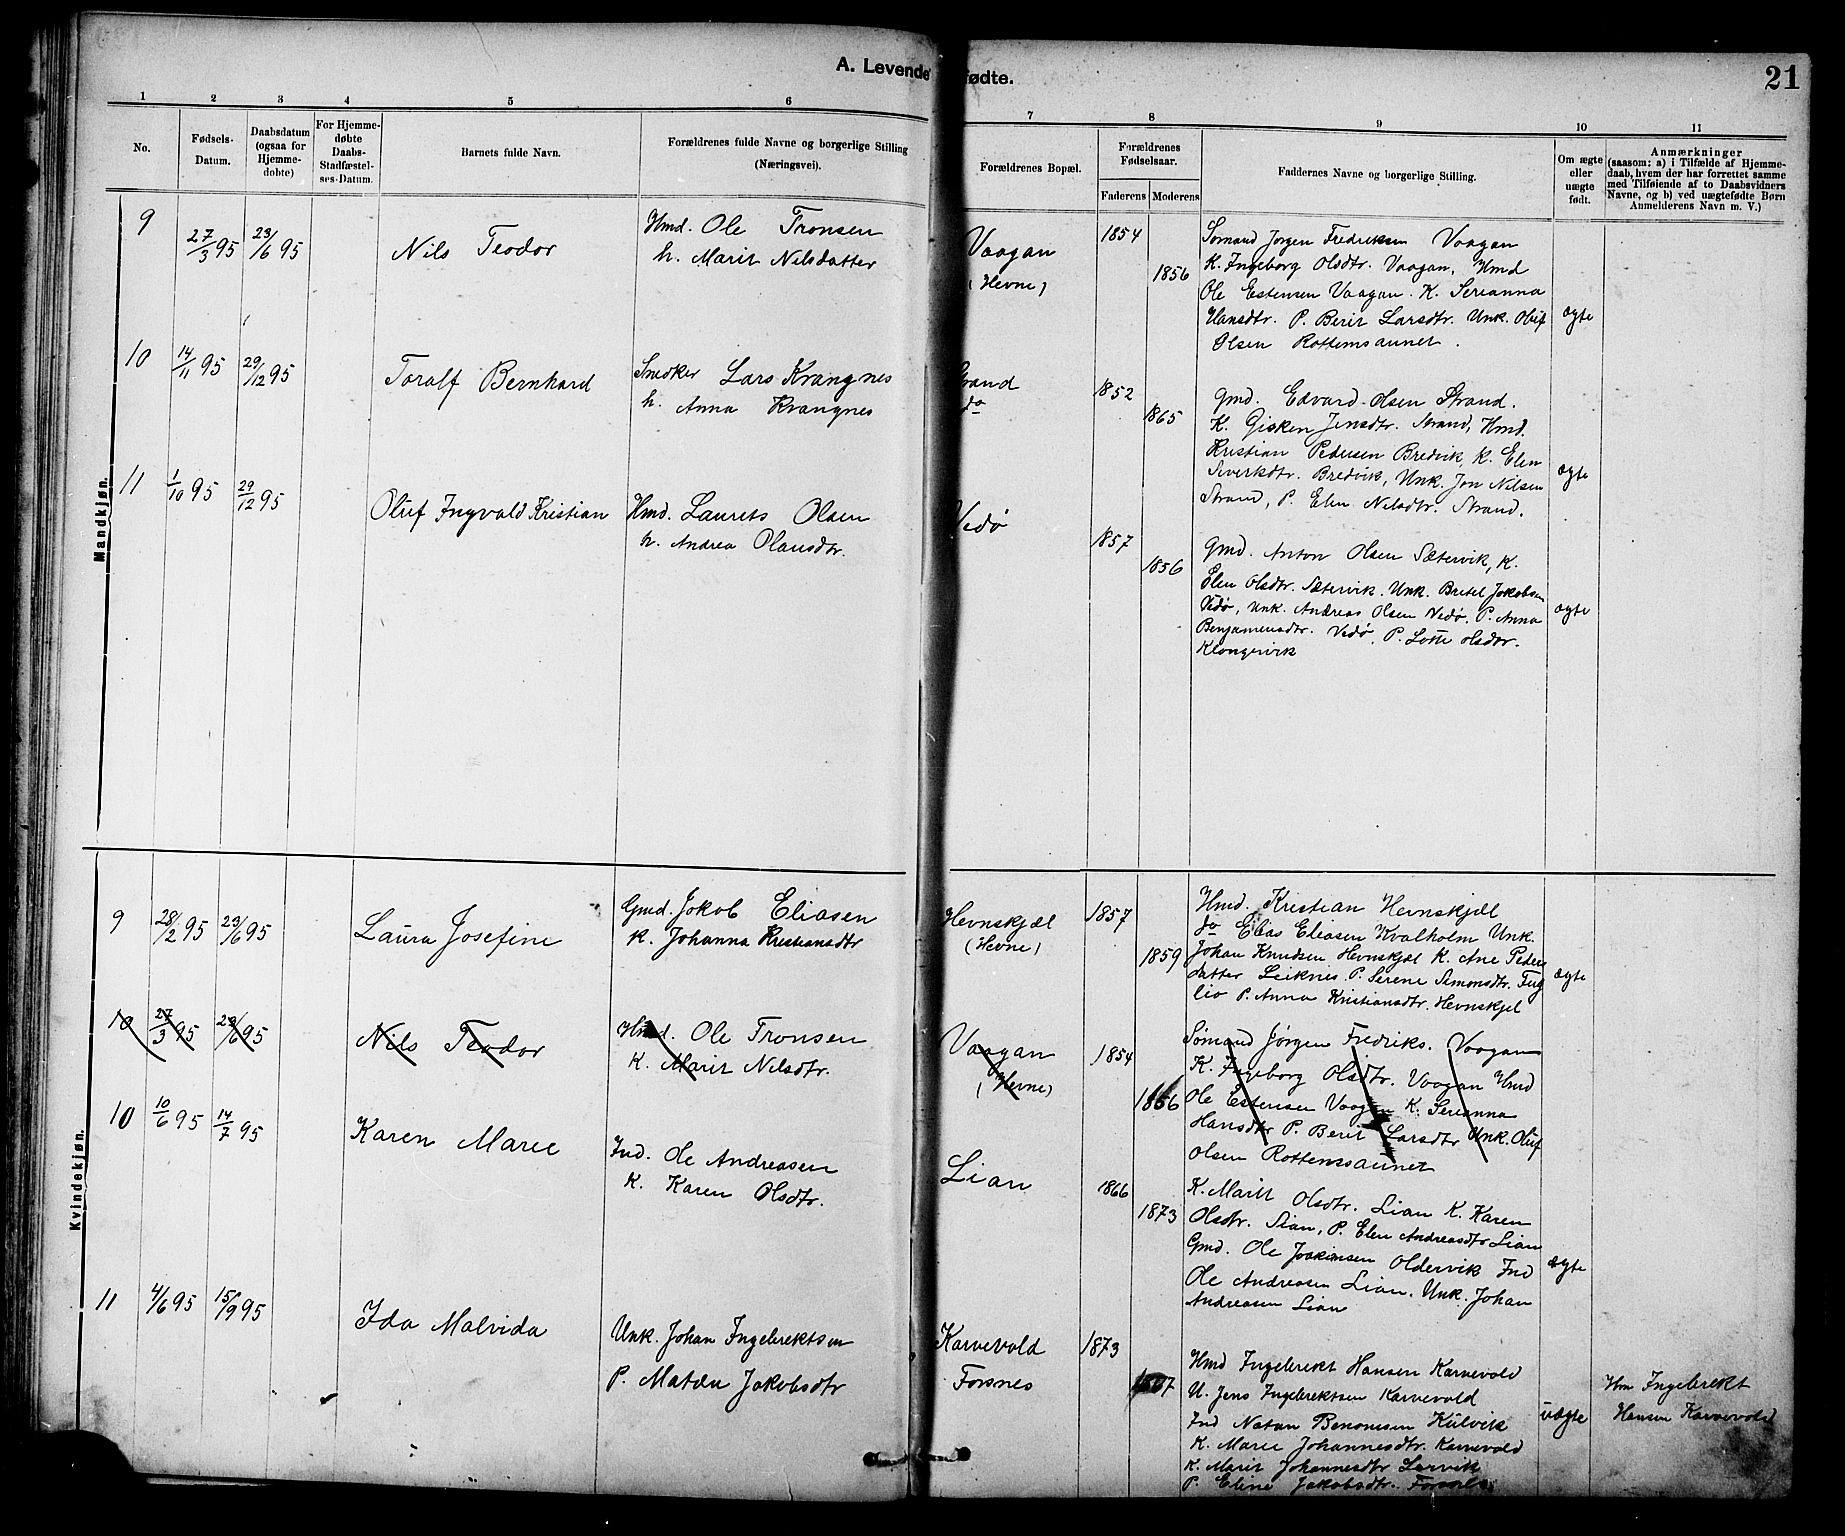 A. Levende fødte.
21
1 2 3 4 5 6 7 8 9 10 11
No.
Fødsels-
Datum.
Daabsdatum
(ogsaa for
Hjemme-
døbte)
For Hjemme-
døbte
Daabs-
Stadfæstel-
ses-Datum.
Barnets fulde Navn.
Forældrenes fulde Navne og borgerlige Stilling
(Næringsvei).
Forældrenes Bopæl.
Forældrenes
Fødselsaar.
Faderens Moderens
Faddernes Navne og borgerlige Stilling.
Om ægte
eller
uægte
født.
Anmærkninger
(saasom: a) i Tilfælde af Hjemme-
daab, hvem der har forrettet samme
med Tilføiende af to Daabsvidners
Navne, og b) ved uægtefødte Børn
Anmelderens Navn m. V.)
Mandkjøn.
9 27/3 95 23/6 95 Nils Teodor
Hmd. Ole Tronsen
h. Marit Nilsdatter
Vaagan
(Hevne)
1854
1856
Sømand Jørgen Fredriksen Vaagan
K. Ingeborg Olsdtr. Vaagan, Hmd
Ole Estensen Vaagan. K. Serianna
Hansdtr. P. Berit Larsdtr. Unk. Oluf
Olsen Rottemsaunet.
ægte
10 14/11 95 29/12 95 Toralf Bernhard
Snedker Lars Krangnes
h. Anna Krangnes
Strand
do
1852
1865
Gmd. Edvard Olsen Strand.
K. Gisken Jensdtr. Strand, Hmd.
Kristian Pedersen Bredvik, K. Elen
Siverksdtr. Bredvik, Unk. Jon Nilsen
Strand, P. Elen Nilsdtr. Strand.
ægte
11 1/10 95 29/12 95 Oluf Ingvald Kristian
Hmd. Laurets Olsen
h. Andrea Olausdtr.
Vedø
1857
1856
Gmd. Anton Olsen Sætervik, K.
Elen Olsdtr. Sætervik. Unk. Bretel Jakobsen
Vedø, Unk. Andreas Olsen Vedø. P. Anna
Benjamensdtr. Vedø, P. Lotte Olsdtr.
Klongervik
ægte
Kvindekjøn.
9 28/2 95 23/6 95 Laura Josefine
Gmd. Jakob Eliasen
K. Johanna Kristiansdtr
Hevnskjæl
(Hevne)
1857
1859
Hmd. Kristian Hevnskjæl
do Elias Eliasen Kvalholm Unk.
Johan Knudsen Hevnskjæl K. Ane Peders
datter Leiknes P. Serene Simonsdtr. Fug
lio P. Anna Kristiansdtr. Hevnskjel
ægte
10 27/3 95 23/6 95 Nils Teodor
Hmd. Ole Tronsen
K. Marit Nilsdtr.
Vaagan
(Hevne)
1854
1856
Sømand Jørgen Fredriks. Vaagan
K. Ingeborg Olsdtr. Vaagan Hmd
Ole Estensen Vaagan K. Serianna
Hansdtr P. Berit Larsdtr Unk. Oluf
Olsen Rottemsaunet
10 10/6 95 14/7 95 Karen Marie
Ind. Ole Andreasen
K. Karen Olsdtr.
Lian
1866
1873
K. Marit Olsdtr. Lian K. Karen
Olsdtr. Lian, P. Elen Andreasdtr Lian
Gmd. Ole Joakimsen Oldervik Ind
Ole Andreasen Lian. Unk. Johan
Andreasen Lian
ægte
11 4/6 95 15/9 95 Ida Malvida
Unk. Johan Ingebrektsen
P. Matea Jakobsdtr
Karvevold
Forsnes
1873
Hmd Ingebrekt Hansen Karvevold
U. Jens Ingebrektsen Karvevold
Ind Natan Benonisen Kulvik
K. Marie Johannesdtr. Karvevold
K. Marit Johannesdtr Larvik
P. Eline Jakobsdtr. Forsnes
uægte
Hm Ingebrekt
Hansen Karvevold